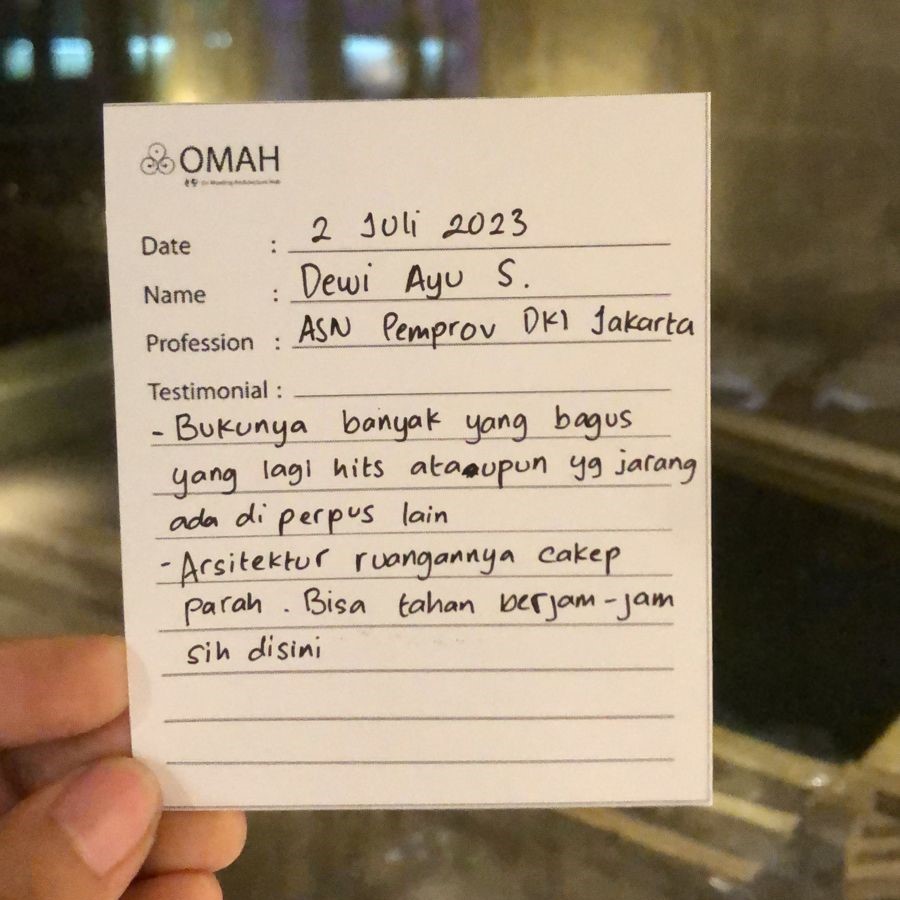 OMAH
On Moating Architecture Hub
Date : 2 Juli 2023
Name : Dewi Ayu S.
Profession : ASN Pemprov DKI Jakarta
Testimonial :
- Bukunya banyak yang bagus
yang lagi hits ataupun yg jarang
ada di perpus lain
- Arsitektur ruangannya cakep
parah. Bisa tahan berjam-jam
sih disini